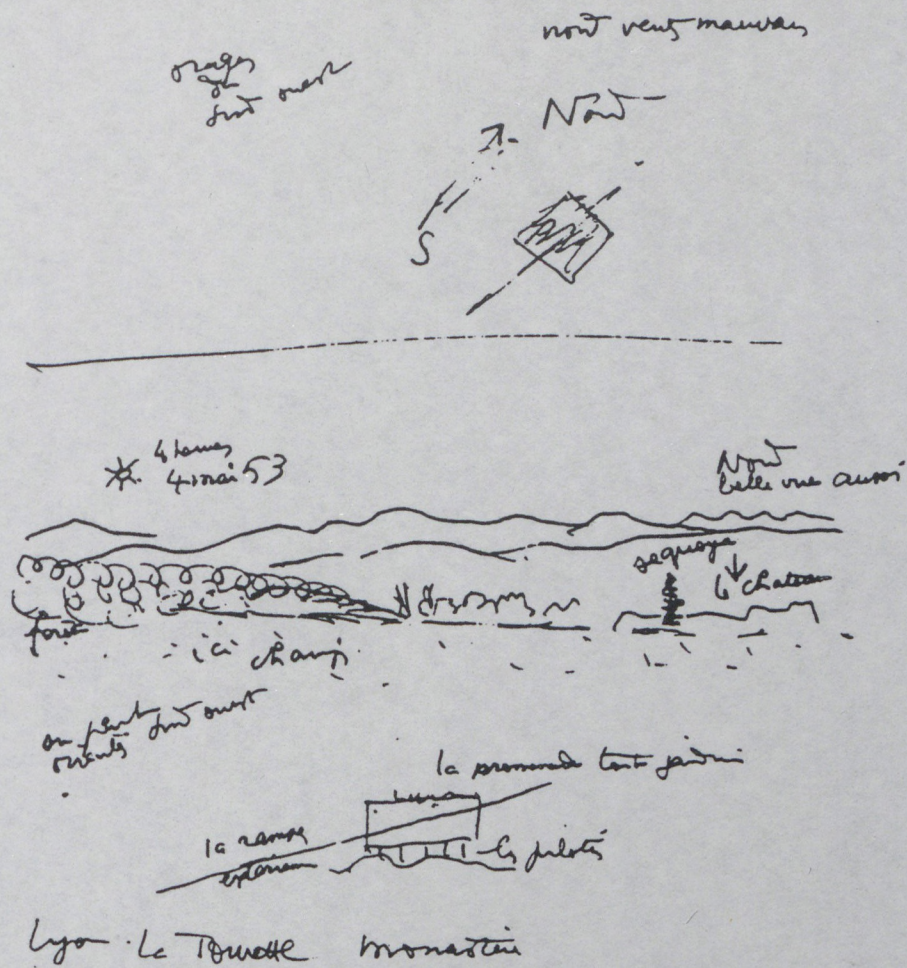 nord vents mauvais
orages
du
sud ouest
Nord
S
4 heures
4 mai 53
Nord
belle vue aussi
sequoya
chateau
forêt
ici champ
on peut
sud ouest
la promenade toit jardin
la rampe
extérieure
les pilotis
Lyon La Tourette monastère